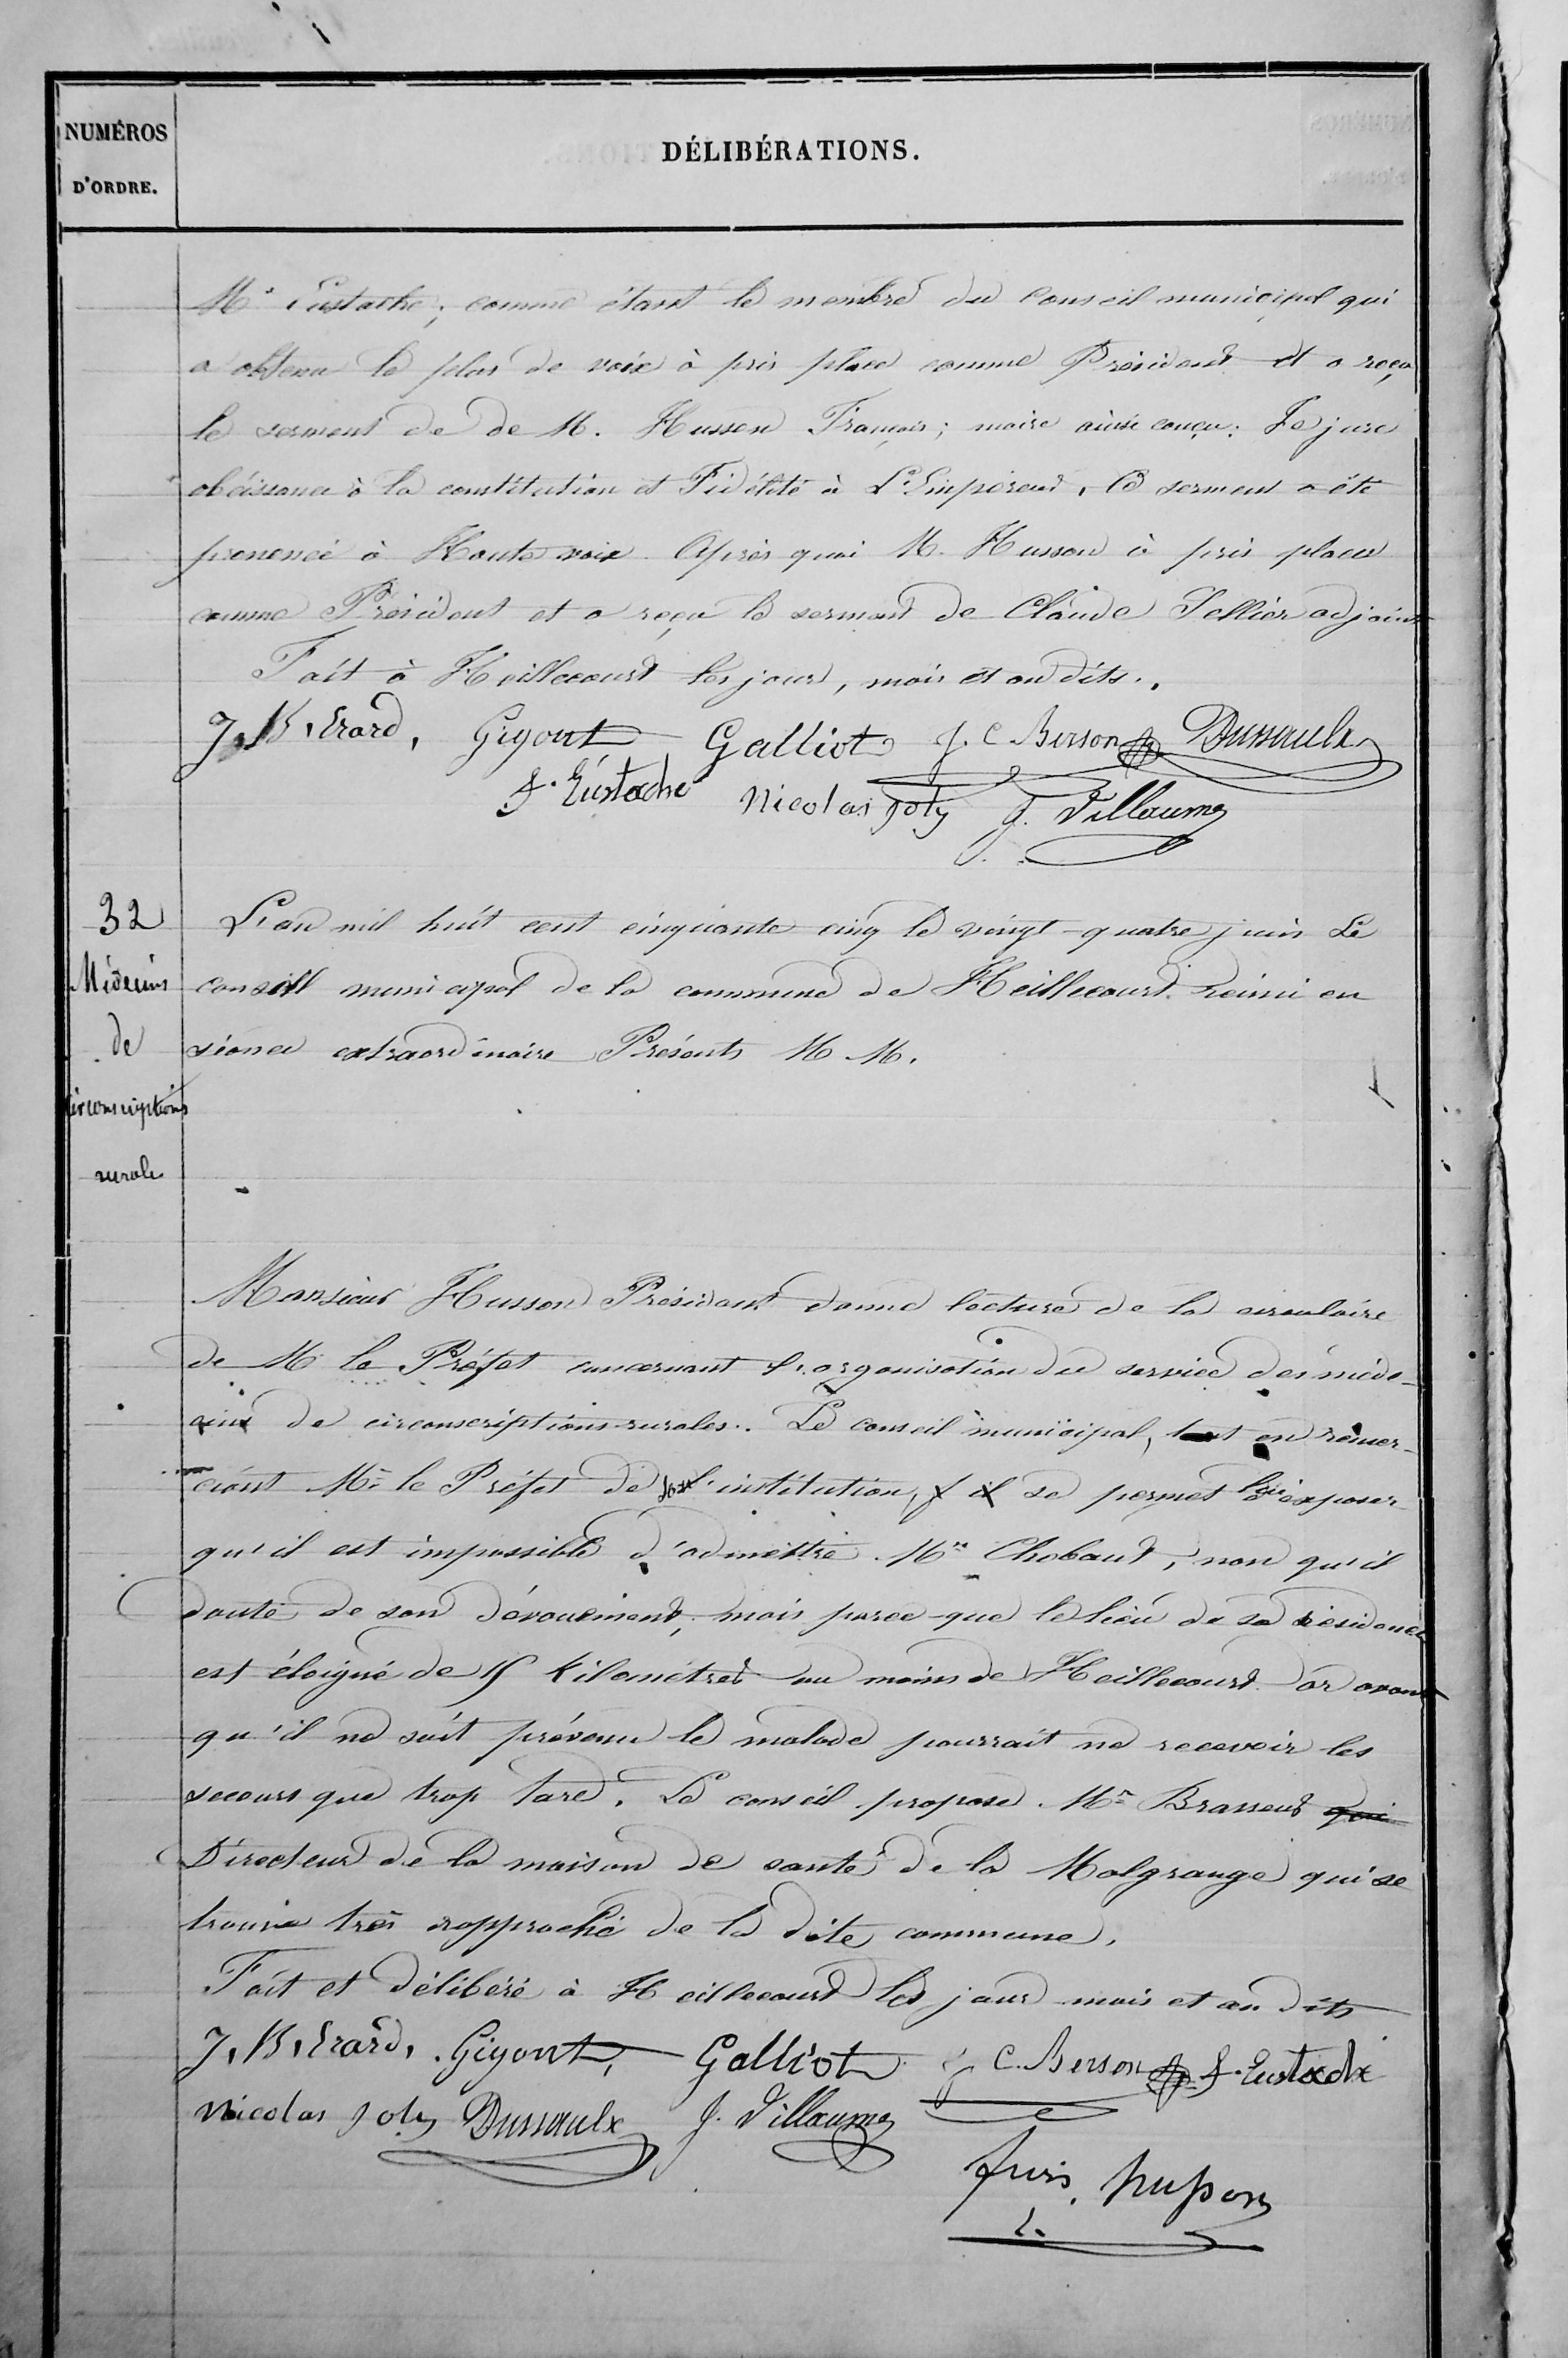 NUMÉROS
D'ORDRE.
DÉLIBÉRATIONS.
Mr Eustache; comme étant le membre du Conseil municipal qui
a obtenu le plus de voix à pris place comme Président et a reçu
le serment de de M. Husson François; maire ainsi conçu: Je jure
obéissance à la constitution et Fidélité à L'Empereur, Ce serment a été
prononcé à Haute voix. Après quoi M. Husson à pris place
comme Président et a reçu le serment de Claude Tellier adjoint
Fait à Heillecourt les jour, mois et an dits.
J, B, Erard, Gigout Galliot J. C Berson Dussaulx
F. Eustache Nicolas Joly J. Villaume
32
Médecins
de
circonscriptions
rurales
L'an mil huit cent cinquante cinq le vingt-quatre juin Le
conseill municipal de la commune de Heillecourt réuni en
séance extraordinaire Présents M M.
Monsieur Husson Président donne lecture de la circulaire
de Mr le Préfet concernant l'organisation du service des méde-
cins de circonscriptions rurales. Le conseil municipal, tout en remer-
ciant Mr le Préfet de l'institution, il se permet lui exposer
qu'il est impossible d'admettre Mr Chobaut, non qu'il
doute de son dévouement, mais parce-que le lieu de sa résidence
est éloigné de 15 Kilomètres au moins de Heillecourt or avant
qu'il ne soit prévenu le malade pourrait ne recevoir les
secours que trop tard. Le conseil propose Mr Brasseur qui
Directeur de la maison de santé de la Malgrange qui se
trouve très rapproché de la dite commune.
Fait et délibéré à Heillecourt les jour mois et an dits
J, B, Erard, Gigout, Galliot J. C. Berson F. Eustache
Nicolas Joly Dussaulx J. Villaume
frois. husson